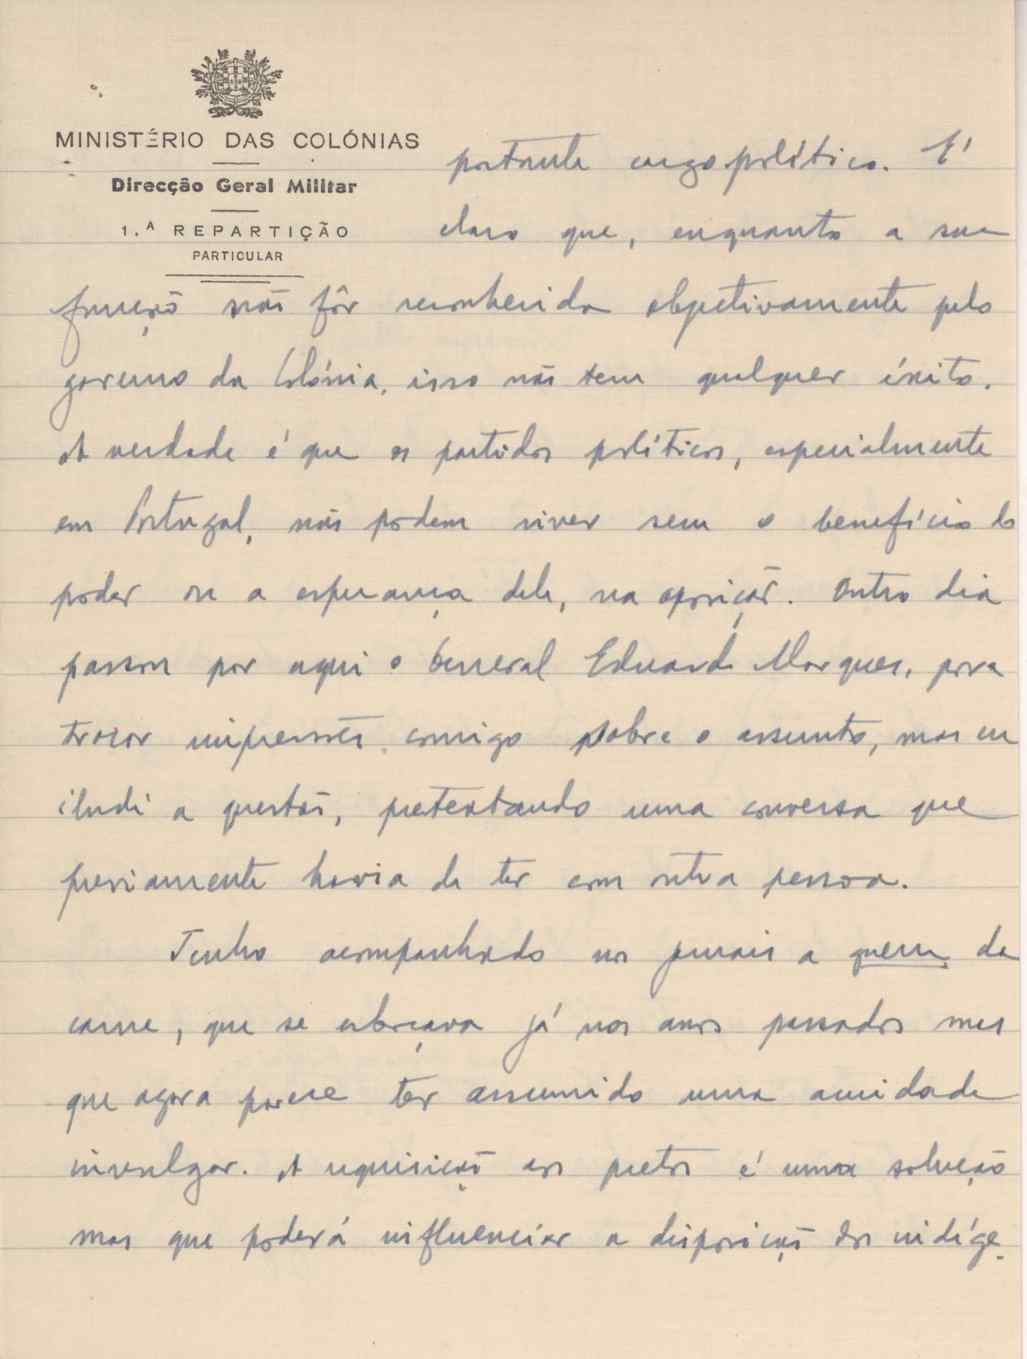 MINISTÉRIO DAS COLÓNIAS
Direcção Geral Militar
1.ª REPARTIÇÃO
PARTICULAR
portante cargo político. É
claro que, enquanto a sua
função não fôr reconhecida objetivamente pelo
governo da Colónia, isso não tem qualquer éxito.
A verdade é que os partidos políticos, especialmente
em Portugal, não podem viver sem o benefício do
poder ou a esperança dele, na oposição. Outro dia
passou por aqui o General Eduardo Marques, para
trocar impressões comigo sobre o assunto, mas eu
iludi a questão, pretextando uma conversa que
previamente havia de ter com outra pessoa.
Tenho acompanhado nos jornais a guerra da
carne, que se esboçava já nos anos passados mas
que agora parece ter assumido uma acuidade
invulgar. A requisição aos pretos é uma solução
mas que poderá influenciar a disposição dos indíge